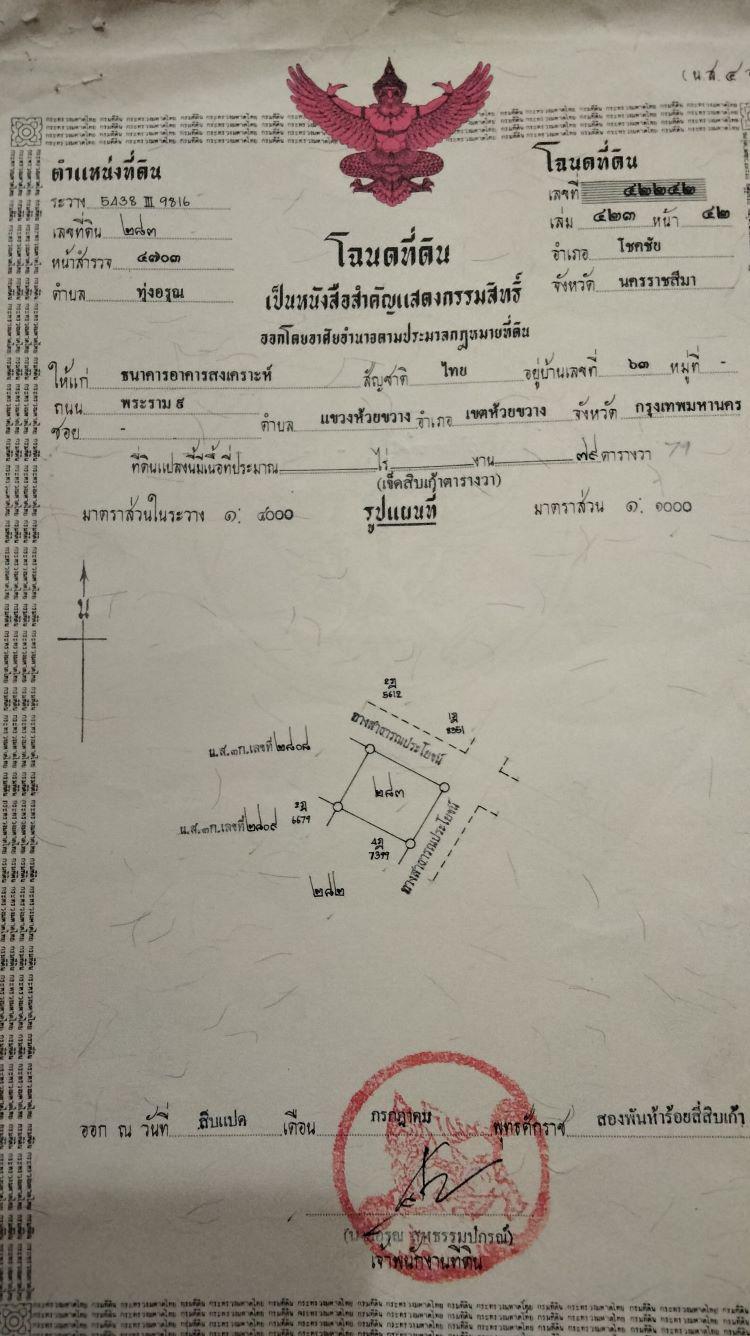 (น.ส.๔
ตำแหน่งที่ดิน
ระวาง 5438 III 9816
เลขที่ดิน ๒๘๓
หน้าสำรวจ ๔๗๐๓
ตำบล ทุ่งอรุณ
โฉนดที่ดิน
เลขที่ ๔๒๒๔๒
เล่ม ๔๒๓ หน้า ๔๒
อำเภอ โชคชัย
จังหวัด นครราชสีมา
โฉนดที่ดิน
เป็นหนังสือสำคัญแสดงกรรมสิทธิ์
ออกโดยอาศัยอำนาจตามประมวลกฎหมายที่ดิน
ให้แก่ ธนาคารอาคารสงเคราะห์ สัญชาติ ไทย อยู่บ้านเลขที่ ๖๓ หมู่ที่ -
ถนน พระราม ๙
ซอย - ตำบล แขวงห้วยขวาง อำเภอ เขตห้วยขวาง จังหวัด กรุงเทพมหานคร
ที่ดินแปลงนี้มีเนื้อที่ประมาณ ไร่ งาน ๗๙ ตารางวา 79
(เจ็ดสิบเก้าตารางวา)
มาตราส่วนในระวาง ๑: ๔๐๐๐ รูปแผนที่ มาตราส่วน ๑: ๑๐๐๐
น
5612
ทางสาธารณประโยชน์
น.ส.๓ก.เลขที่ ๒๘๐๘
๒๘๓
6679
น.ส.๓ก.เลขที่ ๒๘๐๙
7399
ทางสาธารณประโยชน์
๒๘๒
ออก ณ วันที่ สิบแปด เดือน กรกฎาคม พุทธศักราช สองพันห้าร้อยสี่สิบเก้า
เจ้าพนักงานที่ดิน